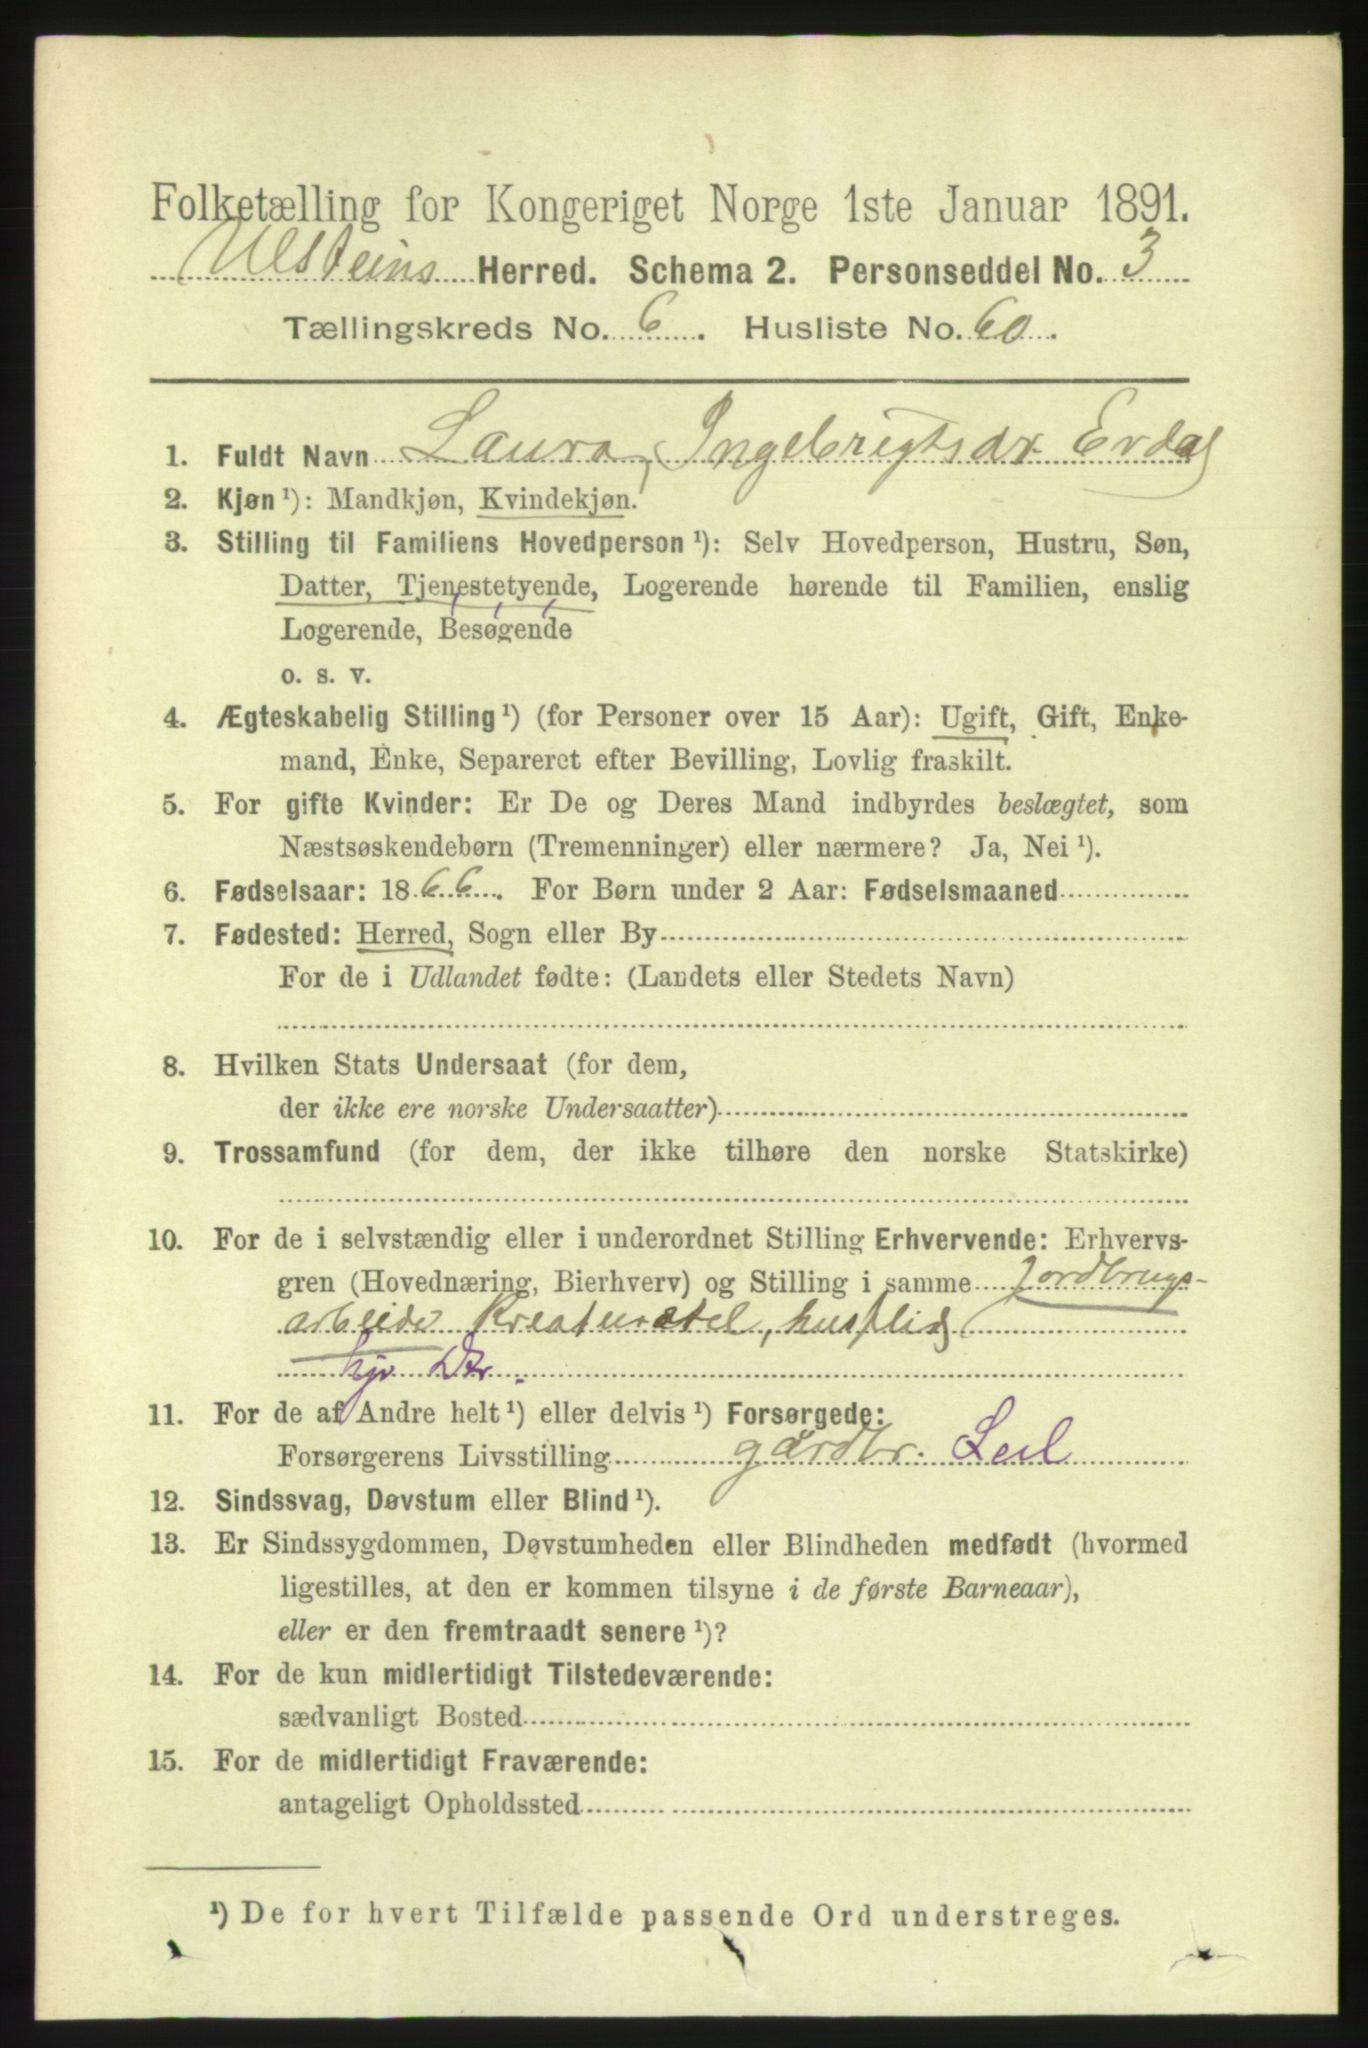 Folketælling for Kongeriget Norge 1ste Januar 1891.
Ulsteins Herred. Schema 2. Personseddel No. 3
Tællingskreds No. 6. Husliste No. 60.
1. Fuldt Navn Laura, Ingebrigtsdr. Erdal
2. Kjøn ¹): Mandkjøn, Kvindekjøn.
3. Stilling til Familiens Hovedperson ¹): Selv Hovedperson, Hustru, Søn,
Datter, Tjenestetyende, Logerende hørende til Familien, enslig
Logerende, Besøgende
o. s. v.
4. Ægteskabelig Stilling ¹) (for Personer over 15 Aar): Ugift, Gift, Enke-
mand, Enke, Separeret efter Bevilling, Lovlig fraskilt.
5. For gifte Kvinder: Er De og Deres Mand indbyrdes beslægtet, som
Næstsøskendebørn (Tremenninger) eller nærmere? Ja, Nei ¹).
6. Fødselsaar: 1866. For Børn under 2 Aar: Fødselsmaaned
7. Fødested: Herred, Sogn eller By
For de i Udlandet fødte: (Landets eller Stedets Navn)
8. Hvilken Stats Undersaat (for dem,
der ikke ere norske Undersaatter)
9. Trossamfund (for dem, der ikke tilhøre den norske Statskirke)
10. For de i selvstændig eller i underordnet Stilling Erhvervende: Erhvervs-
gren (Hovednæring, Bierhverv) og Stilling i samme Jordbrugs-
arbeide Kreaturstel, husflid
hjv Dtr.
11. For de af Andre helt ¹) eller delvis ¹) Forsørgede:
Forsørgerens Livsstilling gårdbr. Leil
12. Sindssvag, Døvstum eller Blind ¹).
13. Er Sindssygdommen, Døvstumheden eller Blindheden medfødt (hvormed
ligestilles, at den er kommen tilsyne i de første Barneaar),
eller er den fremtraadt senere ¹)?
14. For de kun midlertidigt Tilstedeværende:
sædvanligt Bosted
15. For de midlertidigt Fraværende:
antageligt Opholdssted
¹) De for hvert Tilfælde passende Ord understreges.